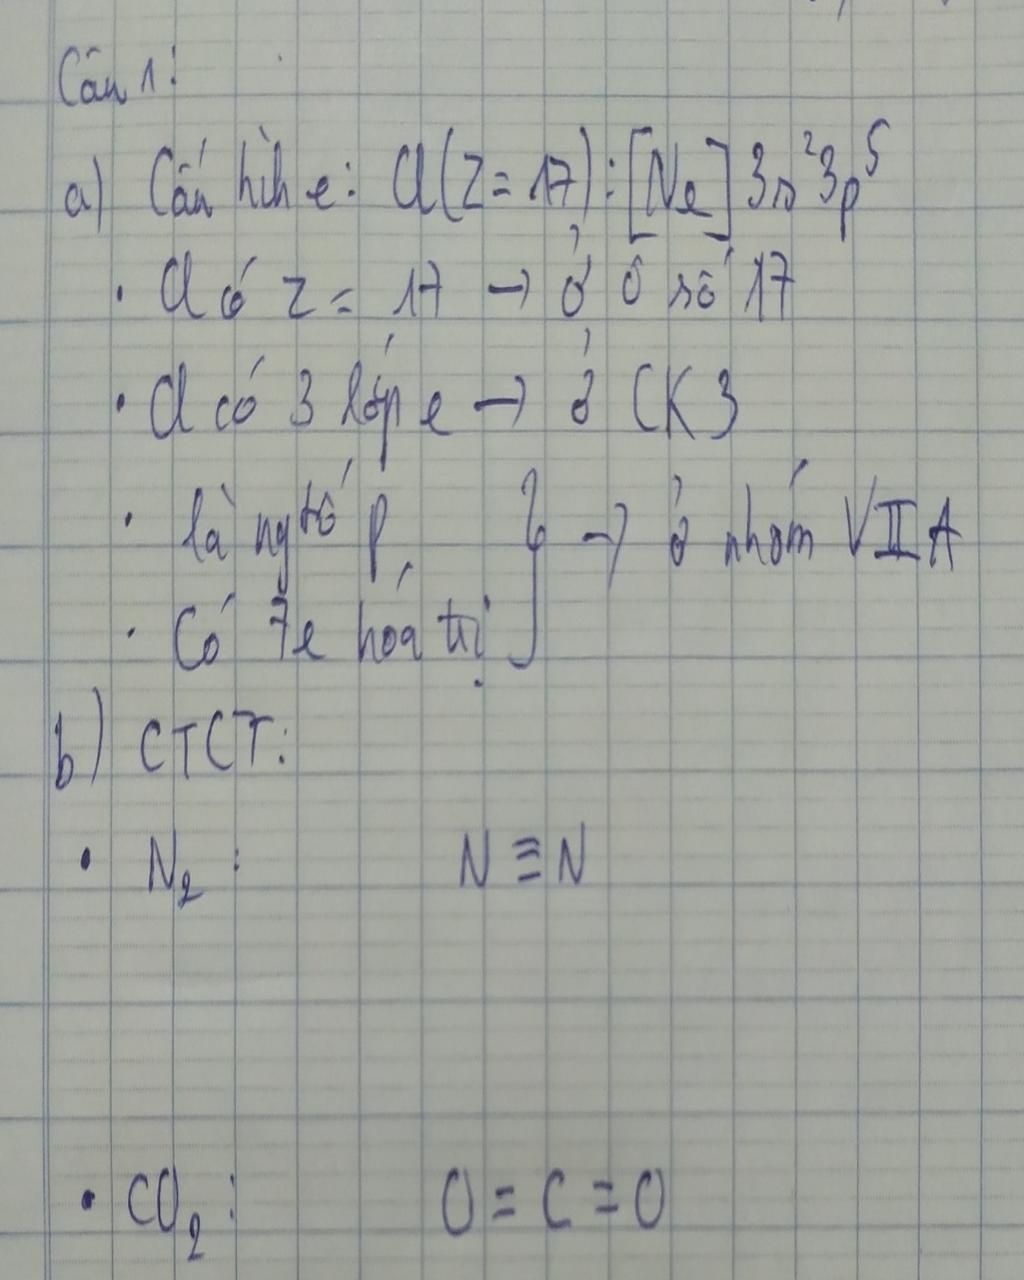 Câu 1:
a) Cấu hình e: Cl (Z = 17): [Ne] 3s²3p⁵
• Cl có Z = 17 → ở ô số 17
• Cl có 3 lớp e → ở CK3
• là ng tố p } → ở nhóm VIIA
• Có 7e hóa trị
b) CTCT:
• N₂ : N ≡ N
• CO₂ : O = C = O